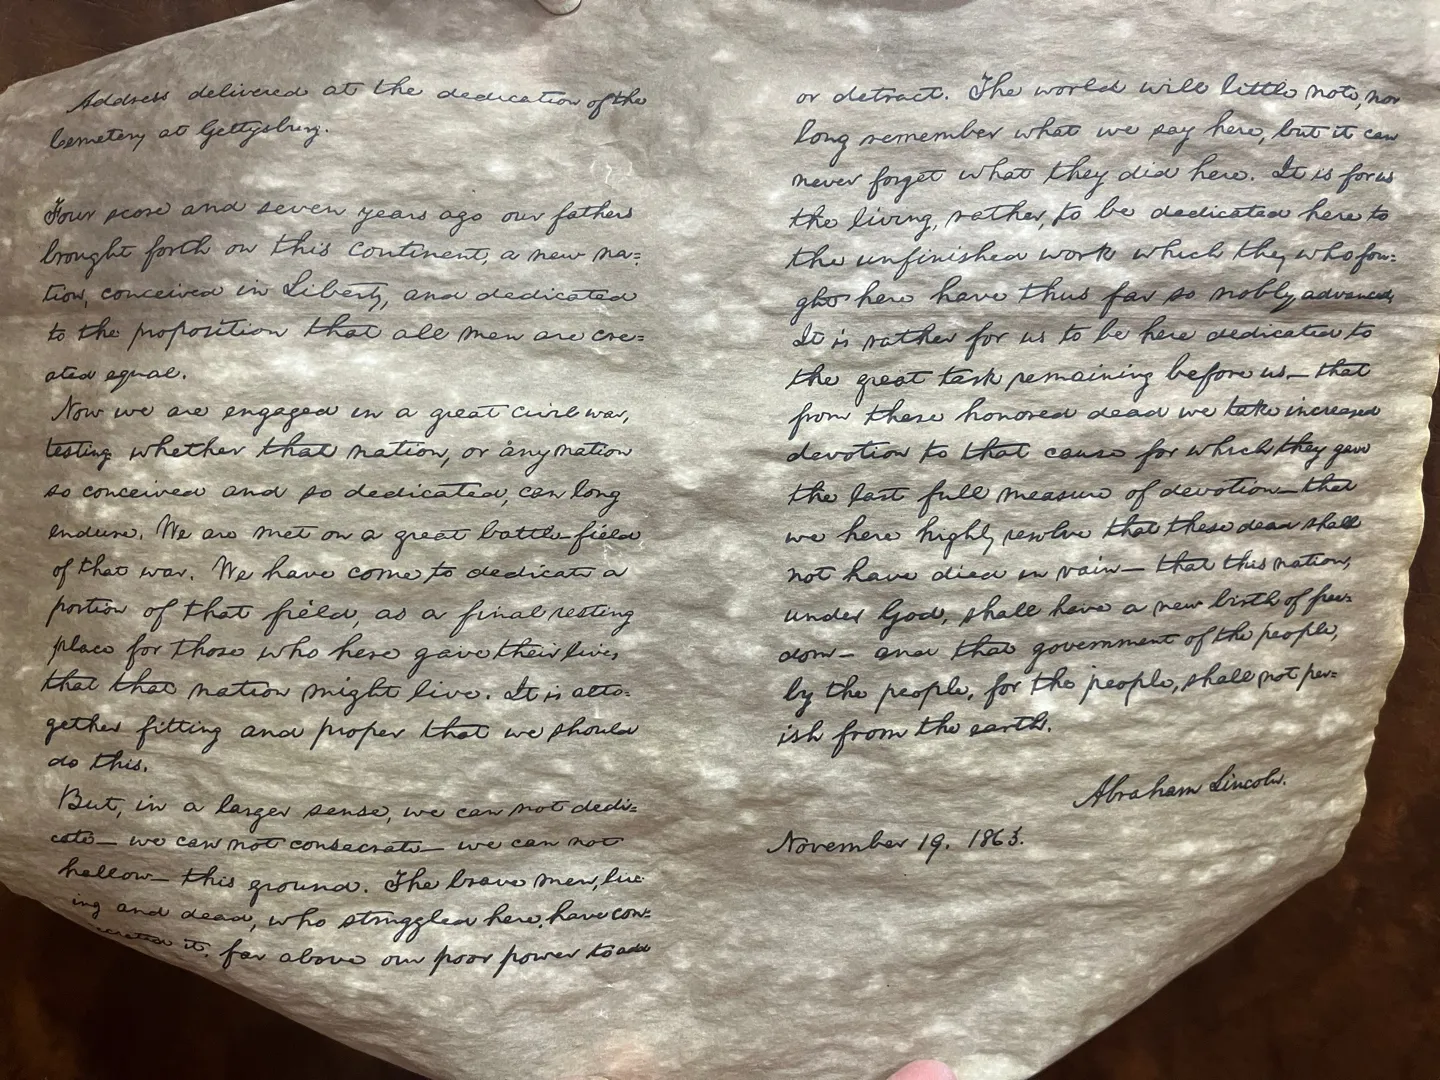 Address delivered at the dedication of the
Cemetery at Gettysburg.
Four score and seven years ago our fathers
brought forth on this continent, a new na=
tion, conceived in Liberty, and dedicated
to the proposition that all men are cre=
ated equal.
Now we are engaged in a great civil war,
testing whether that nation, or any nation
so conceived and so dedicated, can long
endure. We are met on a great battle-field
of that war. We have come to dedicate a
portion of that field, as a final resting
place for those who here gave their lives
that that nation might live. It is alto=
gether fitting and proper that we should
do this.
But, in a larger sense, we can not dedi=
cate— we can not consecrate— we can not
hallow— this ground. The brave men, liv=
ing and dead, who struggled here, have con=
secrated it, far above our poor power to add
or detract. The world will little note, nor
long remember what we say here, but it can
never forget what they did here. It is for us
the living, rather, to be dedicated here to
the unfinished work which they who fou=
ght here have thus far so nobly advanced.
It is rather for us to be here dedicated to
the great task remaining before us— that
from these honored dead we take increased
devotion to that cause for which they gave
the last full measure of devotion— that
we here highly resolve that these dead shall
not have died in vain— that this nation,
under God, shall have a new birth of free=
dom— and that government of the people,
by the people, for the people, shall not per=
ish from the earth.
Abraham Lincoln.
November 19. 1863.